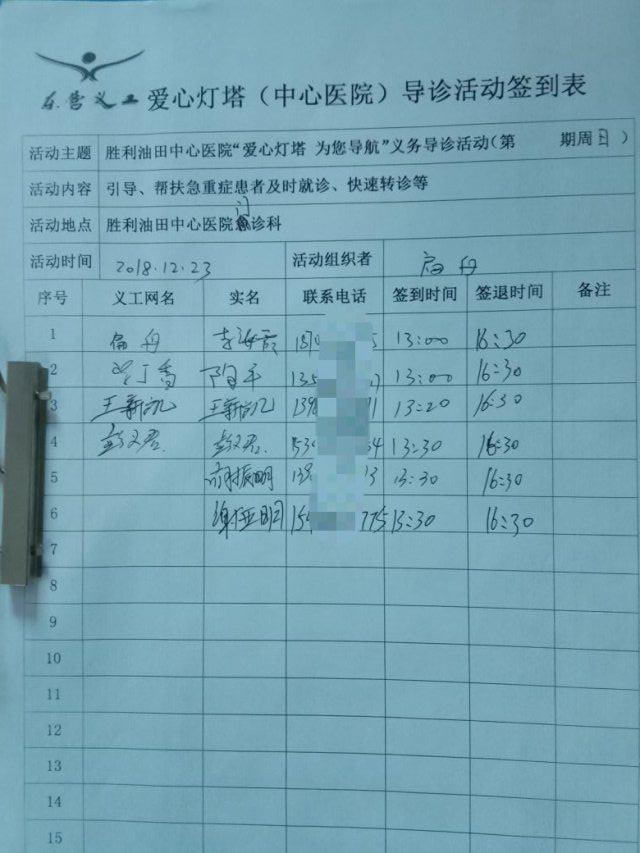 东营义工 爱心灯塔（中心医院）导诊活动签到表
活动主题 胜利油田中心医院“爱心灯塔 为您导航”义务导诊活动（第 期周日）
活动内容 引导、帮扶急重症患者及时就诊、快速转诊等
活动地点 胜利油田中心医院门诊科
活动时间 2018.12.23 活动组织者 扁舟
序号 义工网名 实名 联系电话 签到时间 签退时间 备注
1 扁舟 13:00 16:30
2 13:00 16:30
3 王新凯 王新凯 13:20 16:30
4 13:30 16:30
5 13:30 16:30
6 13:30 16:30
7
8
9
10
11
12
13
14
15